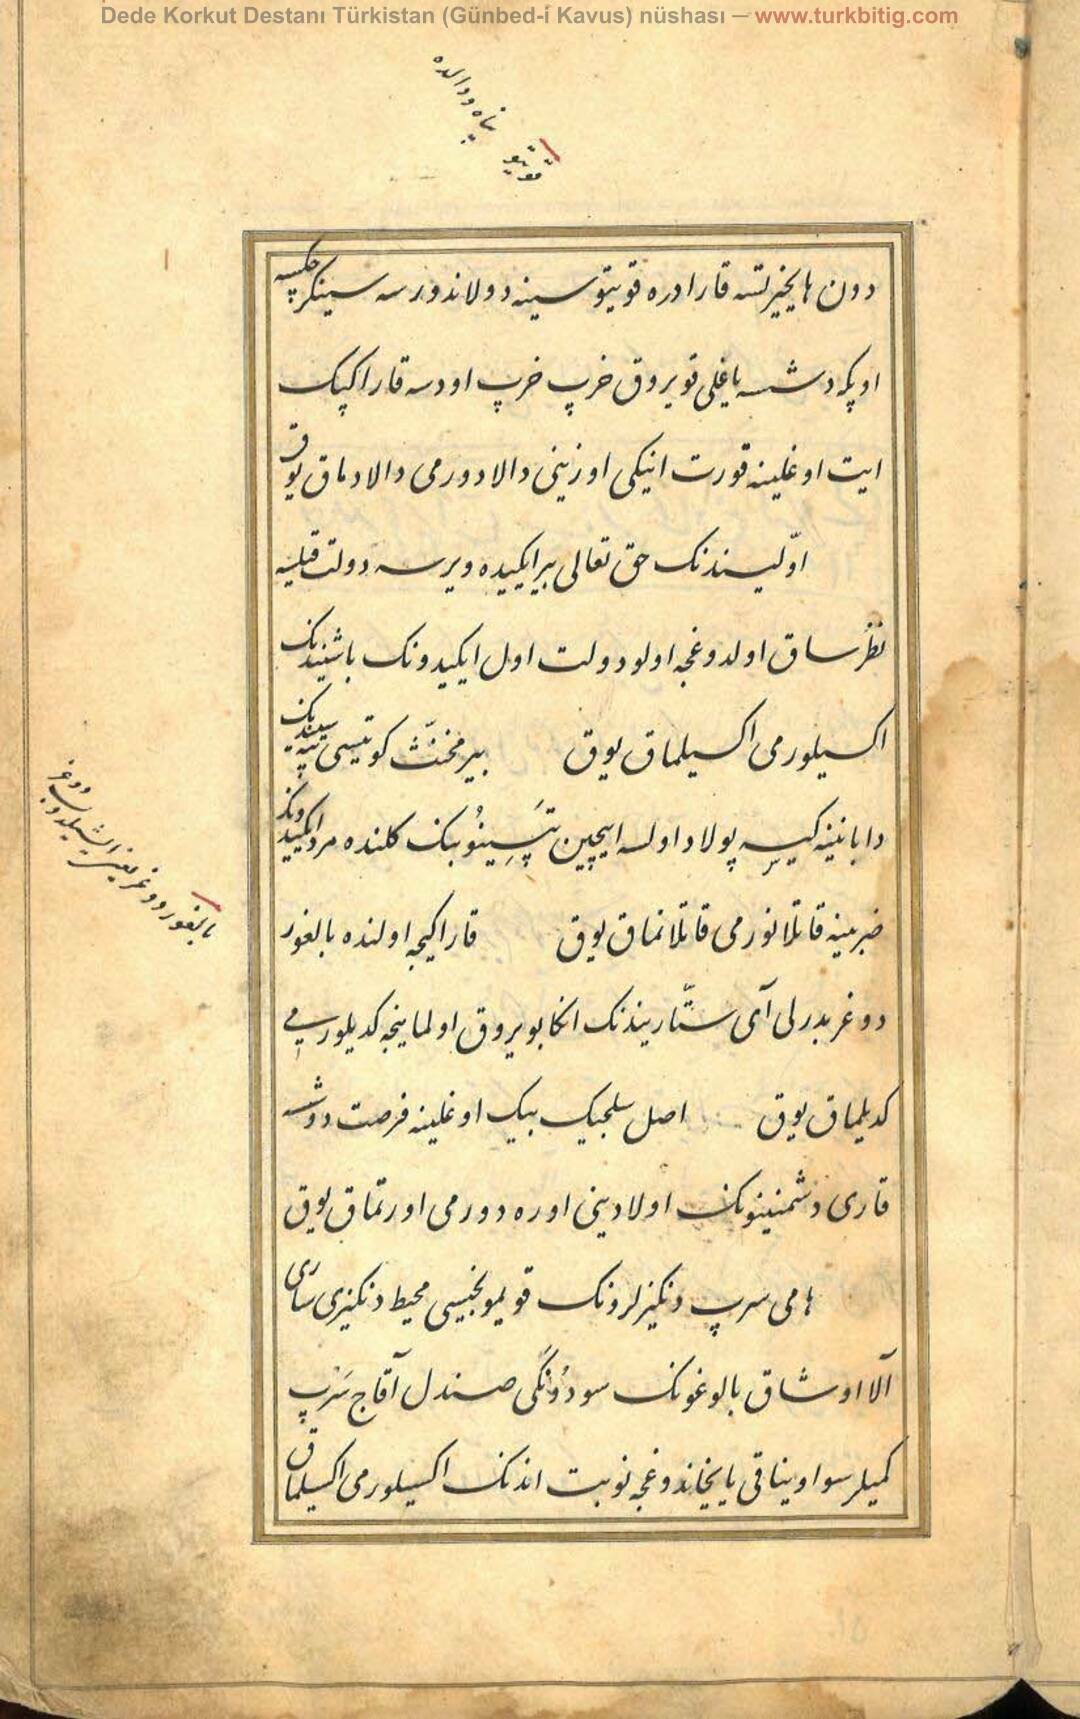 Dede Korkut Destanı Türkistan (Günbed-í Kavus) nüshası — www.turkbitig.com
قویتو پناه و والده
دون هایخیرتسه قارا دره قویتوسینه دولاندورسه سینکرچکیسه
اوپکه دشسه یاغلی قویروق خرپ خرپ اودسه قارا کپک
ایت اوغلینه قورت انیکی اوزینی دالادورمی دالادماق یوق
اوّلیسندنک حق تعالی بیر ایکیده ویرسه دولت قیلسه
نظر ساق اولدوغجه اولو دولت اول ایکیدونک باشیندنک
اکسیلورمی اکسیلماق یوق بیر مخنّث کوتیسی تپه سیندنک
دابانینه کیسه پولاد اولسه ایچین تَپَسِینوُبنک کلنده مرد ایکیدونک
ضربینه قاتلانورمی قاتلانماق یوق قارا کیجه اولنده بالغور
دوغر بدرلی آی ستّاریندنک انکا بویروق اولماینجه کدیلورمی
کدیلماق یوق اصل سلجیک بیک اوغلینه فرصت دوشسه
قاری دشمنینونک اولادینی اوره دورمی اورتماق یوق
هامی سرپ دنکیزلرونک قویلمونجیسی محیط دنکیزی ساری
آلا اوشاق بالوغونک سودوُنَکی صندل آقاج سَرْپ
کمیلر سو اویناقی یایخاندوغجه نوبت اندنک اکسیلورمی اکسیلماق
بالغور دوغر یعنی ایشیلدوب دوغر